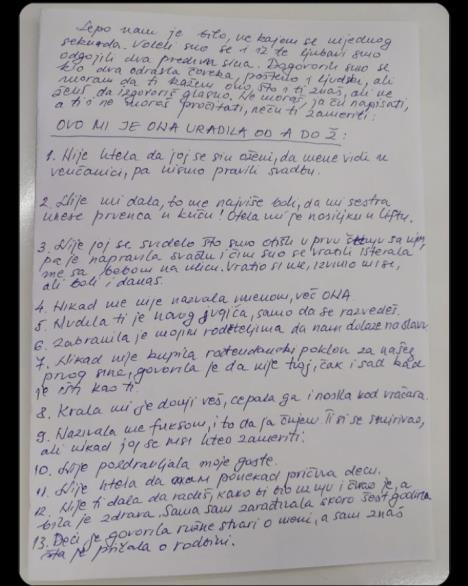 Lepo nam je bilo, ne kajem se nijednog
sekunda. Voleli smo se i iz te ljubavi smo
odgojili dva predivna sina. Dogovorili smo se
kao dva odrasla čoveka, pošteno i ljudski, ali
moram da ti kažem ono što i ti znaš, ali ne
želiš da izgovoriš glasno. Ne moraš, ja ću napisati,
a ti i ne moraš pročitati, neću ti zameriti:
OVO MI JE ONA URADILA OD A DO Ž:
1. Nije htela da joj se sin oženi, da mene vidi u
venčanici, pa nismo pravili svadbu.
2. Nije mi dala, to me najviše boli, da mi sestra
unese prvenca u kuću! Otela mi je nosiljku u liftu.
3. Nije joj se svidelo što smo otišli u prvu šetnju sa njim,
pa je napravila svađu i čim smo se vratili isterala
me sa bebom na ulicu. Vratio si me, izvinio mi se,
ali boli i danas.
4. Nikad me nije nazvala imenom, već ONA.
5. Nudila ti je novog golfića, samo da se razvedeš.
6. Zabranila je mojim roditeljima da nam dolaze na slavu.
7. Nikad nije kupila rođendanski poklon za našeg
prvog sina, govorila je da nije tvoj, čak i sad kad
je isti kao ti.
8. Krala mi je donji veš, cepala ga i nosila kod vračara.
9. Nazivala me fuksom, i to da ja čujem. Ti si se smejurio,
ali nikad joj se nisi hteo zameriti.
10. Nije pozdravljala moje goste.
11. Nije htela da nam ponekad pričuva decu.
12. Nije ti dala da radiš, kako bi bio uz nju i čuvao je, a
bila je zdrava. Sama sam zarađivala skoro šest godina.
13. Deci je govorila ružne stvari o meni, a sam znaš
šta je pričala o rodbini.